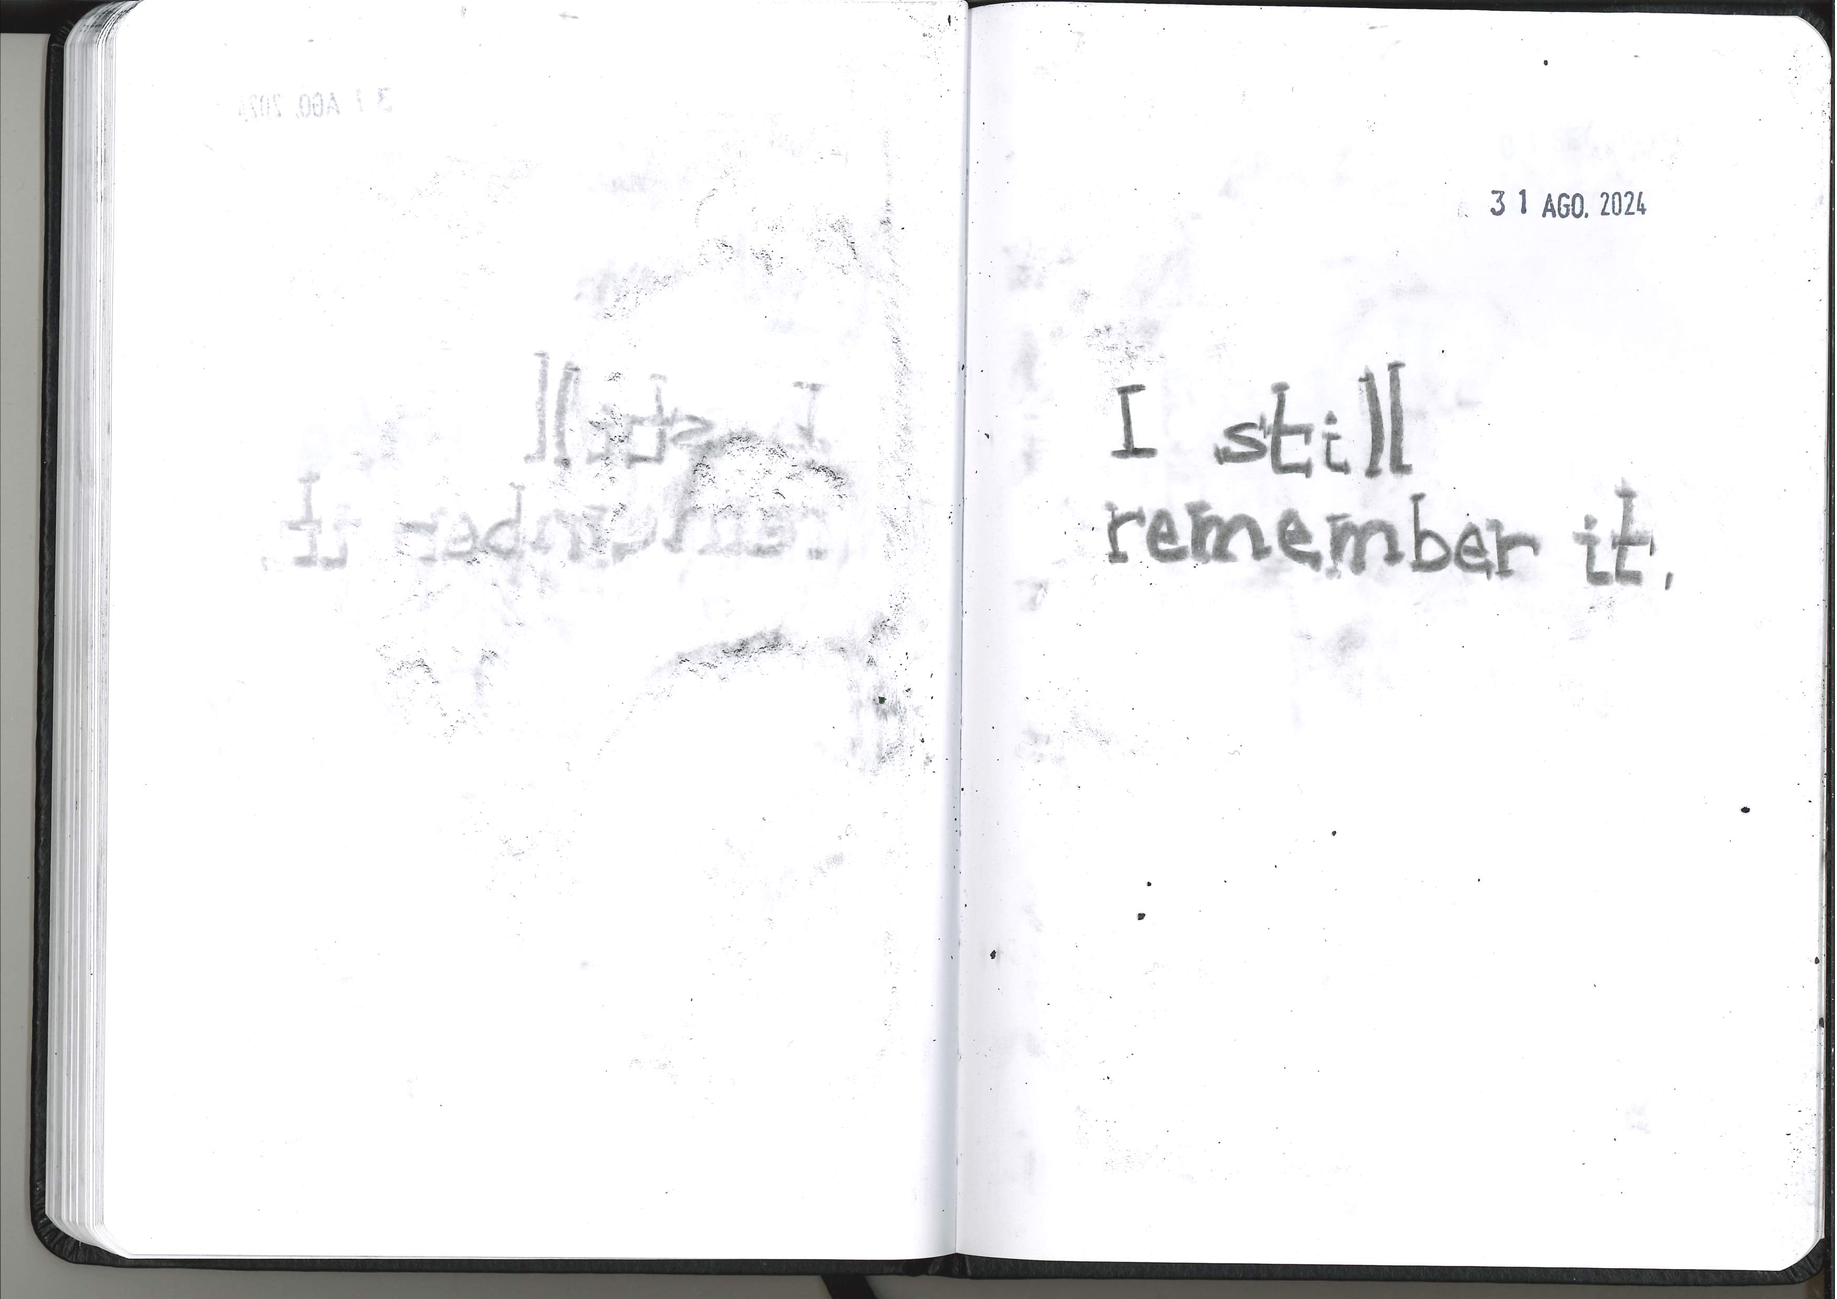 31 AGO. 2024
I still
remember it.